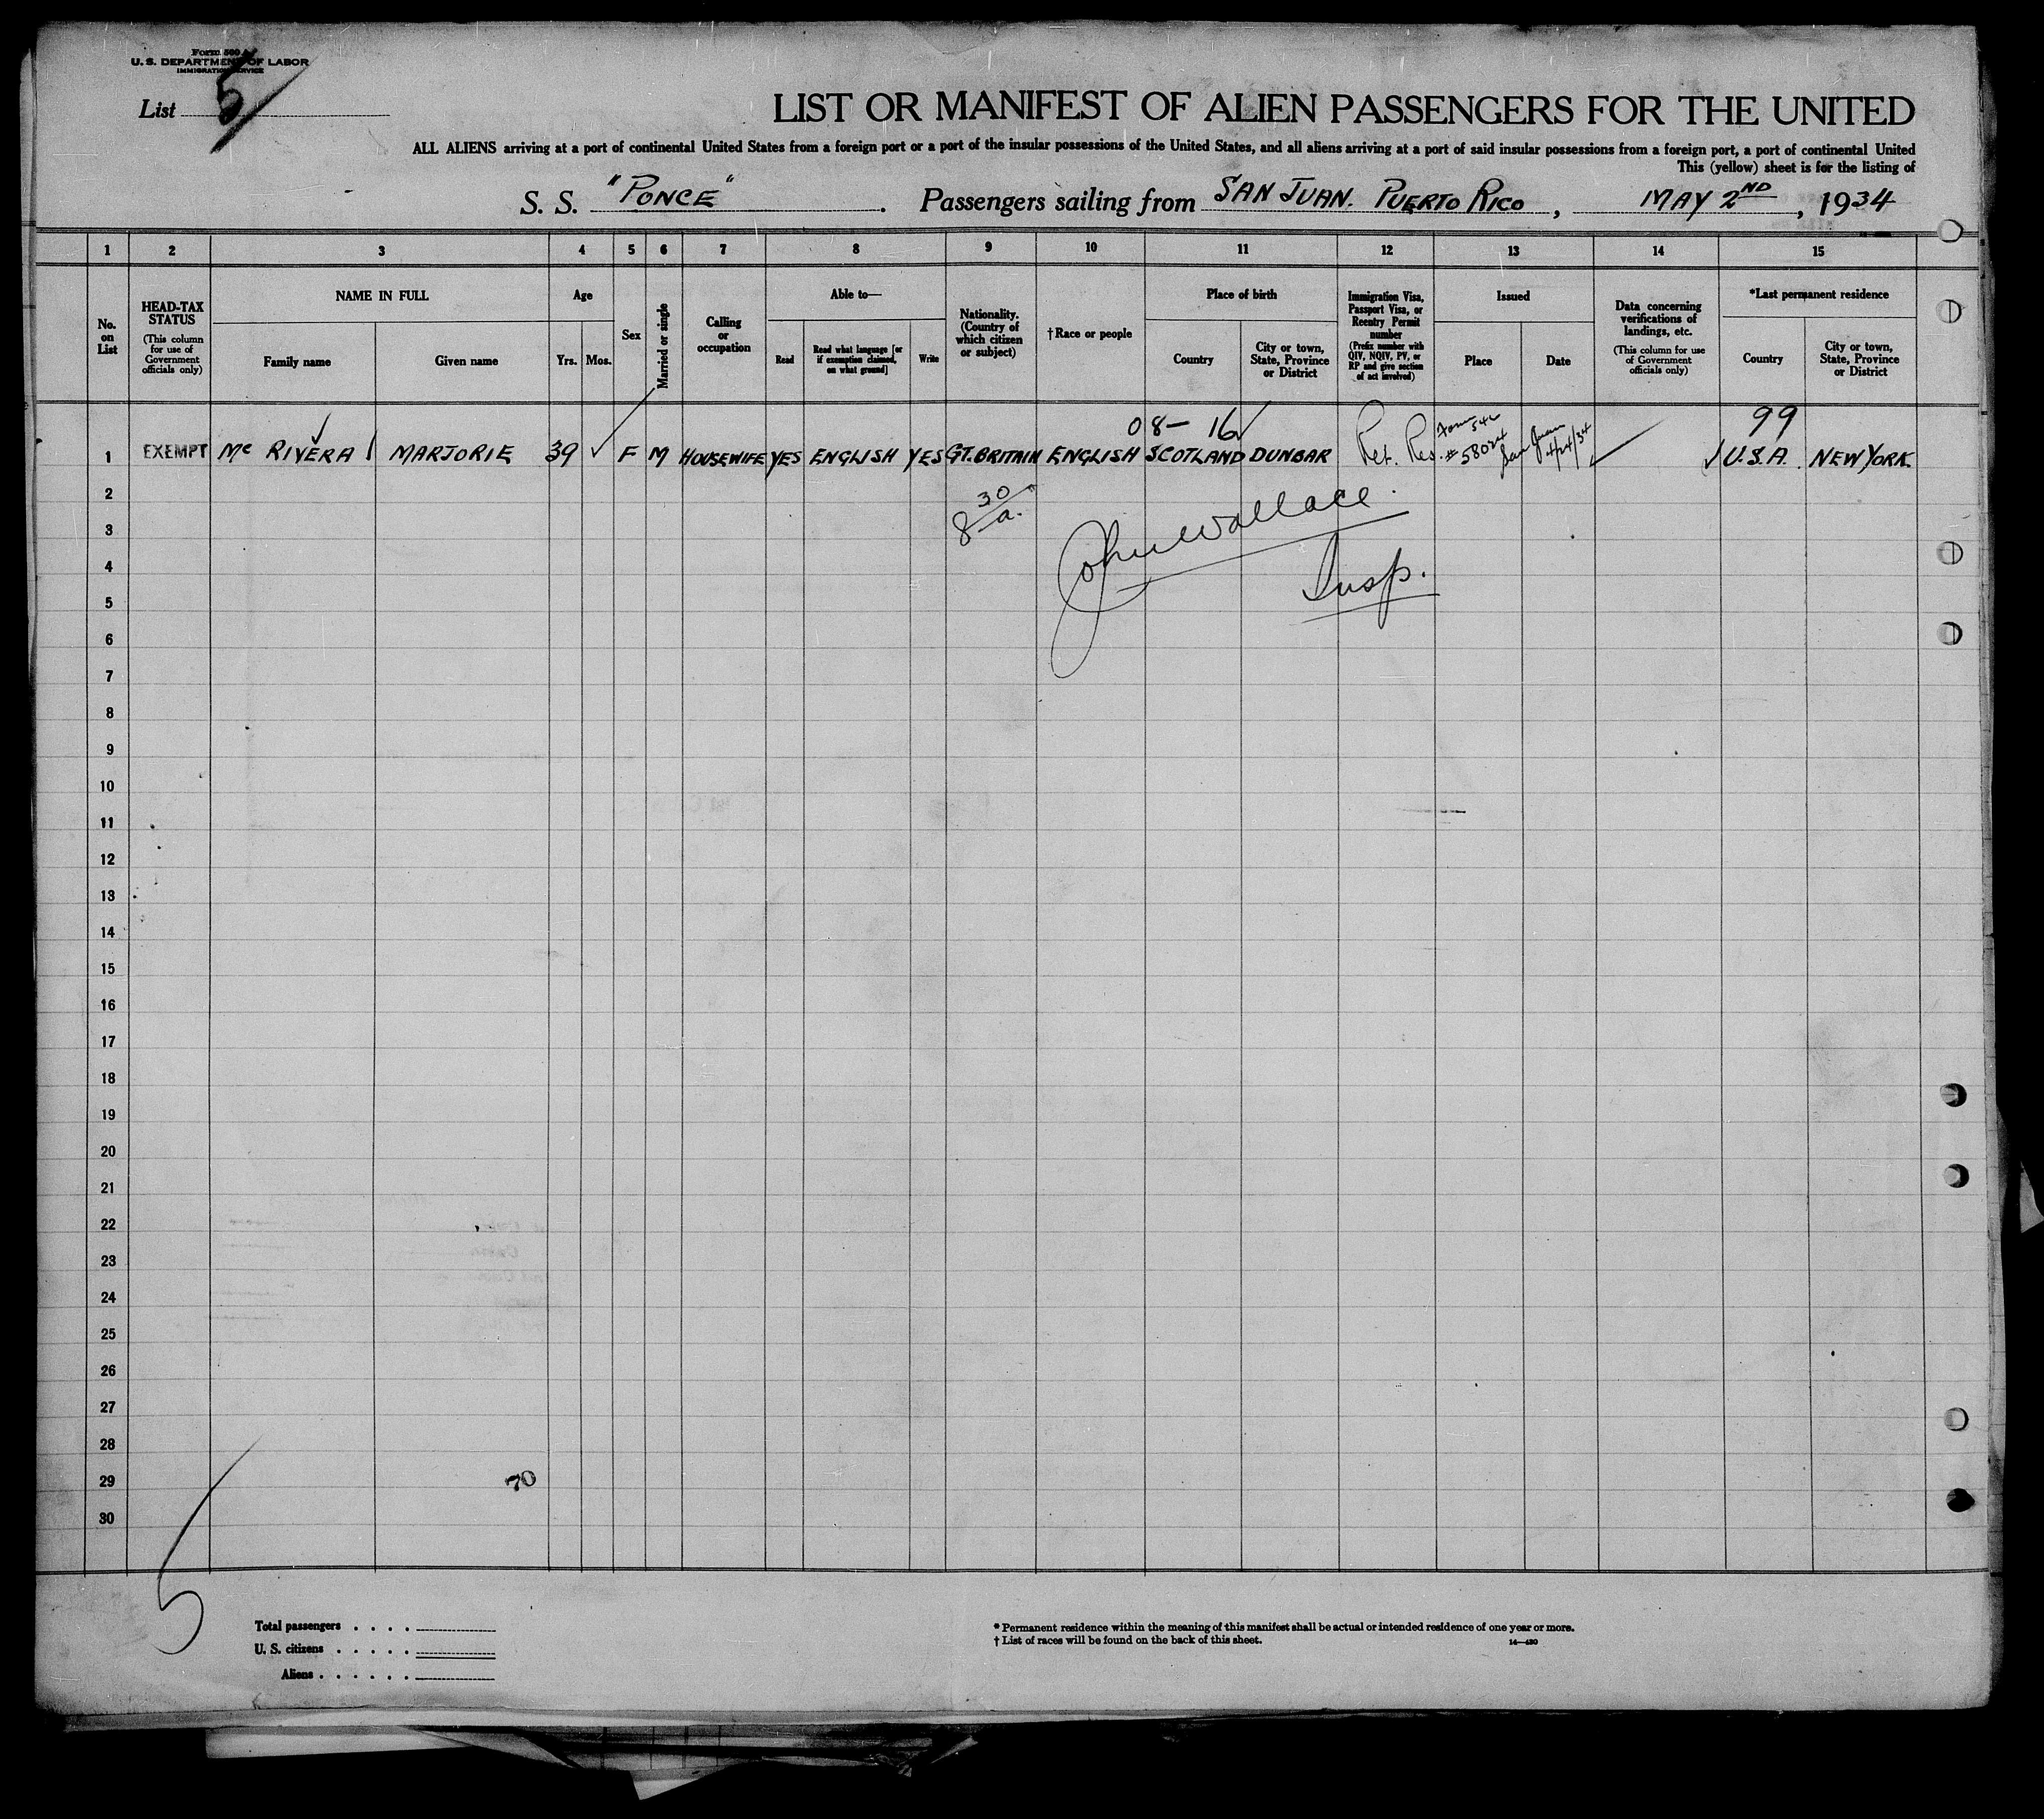 Form 500
U. S. DEPARTMENT OF LABOR
IMMIGRATION SERVICE
List 5
LIST OR MANIFEST OF ALIEN PASSENGERS FOR THE UNITED
ALL ALIENS arriving at a port of continental United States from a foreign port or a port of the insular possessions of the United States, and all aliens arriving at a port of said insular possessions from a foreign port, a port of continental United
This (yellow) sheet is for the listing of
S. S. "PONCE". Passengers sailing from SAN JUAN. PUERTO RICO, MAY 2ND, 1934
1 2 3 4 5 6 7 8 9 10 11 12 13 14 15
No. on List
HEAD-TAX STATUS
(This column for use of Government officials only)
NAME IN FULL
Family name
Given name
Age
Yrs. Mos.
Sex
Married or single
Calling or occupation
Able to—
Read
Read what language [or if exemption claimed, on what ground]
Write
Nationality. (Country of which citizen or subject)
†Race or people
Place of birth
Country
City or town, State, Province or District
Immigration Visa, Passport Visa, or Reentry Permit number
(Prefix number with QIV, NQIV, PV, or RP and give section of act involved)
Issued
Place
Date
Data concerning verifications of landings, etc.
(This column for use of Government officials only)
*Last permanent residence
Country
City or town, State, Province or District
08- 16 99
1 EXEMPT Mc RIVERA MARJORIE 39 F M HOUSEWIFE YES ENGLISH YES GT. BRITAIN ENGLISH SCOTLAND DUNBAR Ret. Res. Form 546 #58024 San Juan 4/24/34 U.S.A. NEW YORK.
2
8 30/a.
John Wallace.
3
4
Insp.
5
6
7
8
9
10
11
12
13
14
15
16
17
18
19
20
21
22
23
24
25
26
27
28
29 70
30
5
Total passengers . . . .
U. S. citizens . . . . .
Aliens . . . . . .
* Permanent residence within the meaning of this manifest shall be actual or intended residence of one year or more.
† List of races will be found on the back of this sheet. 14—430